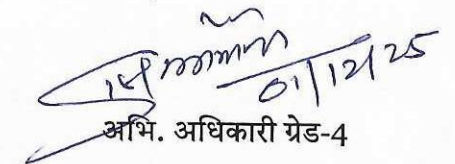 01/12/25
अभि. अधिकारी ग्रेड-4